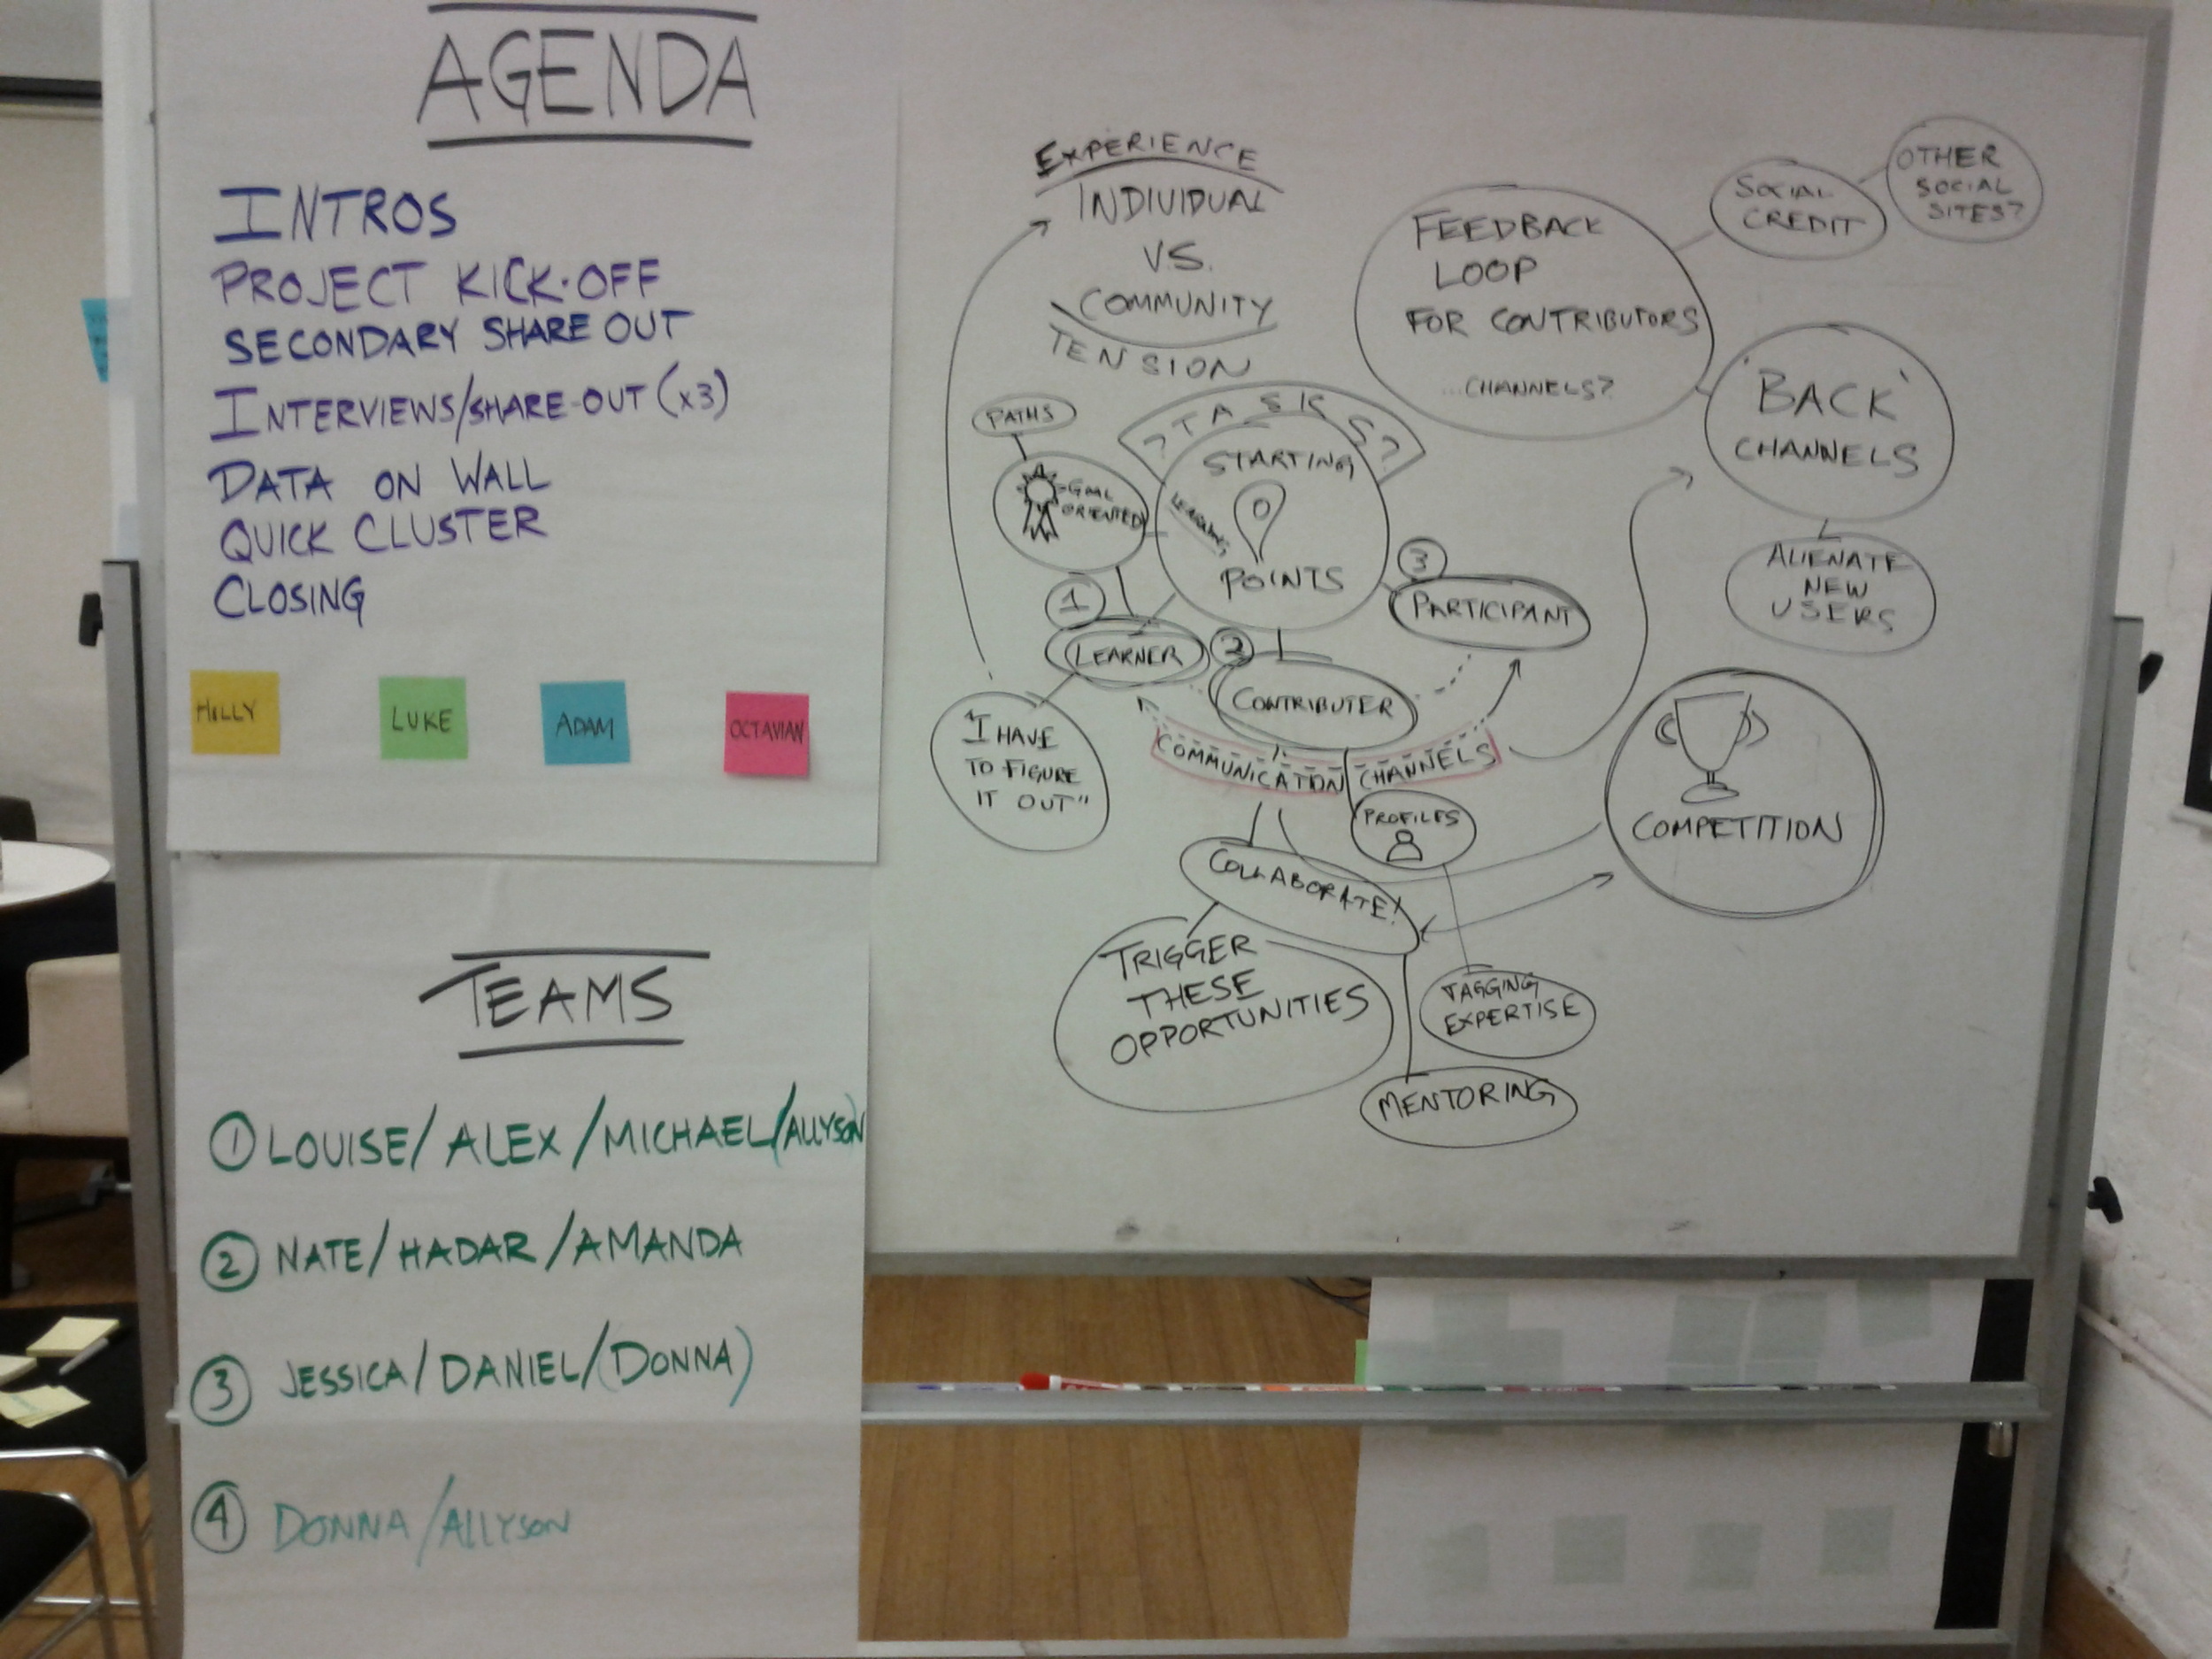 AGENDA
INTROS
PROJECT KICK-OFF
SECONDARY SHARE OUT
INTERVIEWS/SHARE-OUT (x3)
DATA ON WALL
QUICK CLUSTER
CLOSING
HOLLY
LUKE
ADAM
OCTAVIAN
TEAMS
1 LOUISE/ALEX/MICHAEL/(ALLYSON)
2 NATE/HADAR/AMANDA
3 JESSICA/DANIEL/(DONNA)
4 DONNA/ALLYSON
EXPERIENCE
INDIVIDUAL
VS.
COMMUNITY
TENSION
FEEDBACK
LOOP
FOR CONTRIBUTORS
...CHANNELS?
SOCIAL
CREDIT
OTHER
SOCIAL
SITES?
'BACK'
CHANNELS
ALIENATE
NEW
USERS
PATHS
GOAL
ORIENTED
?TASKS?
STARTING
LEARNING
POINTS
1
LEARNER
2
CONTRIBUTER
3
PARTICIPANT
"I HAVE
TO FIGURE
IT OUT"
COMMUNICATION CHANNELS
PROFILES
COLLABORATE!
COMPETITION
TRIGGER
THESE
OPPORTUNITIES
TAGGING
EXPERTISE
MENTORING